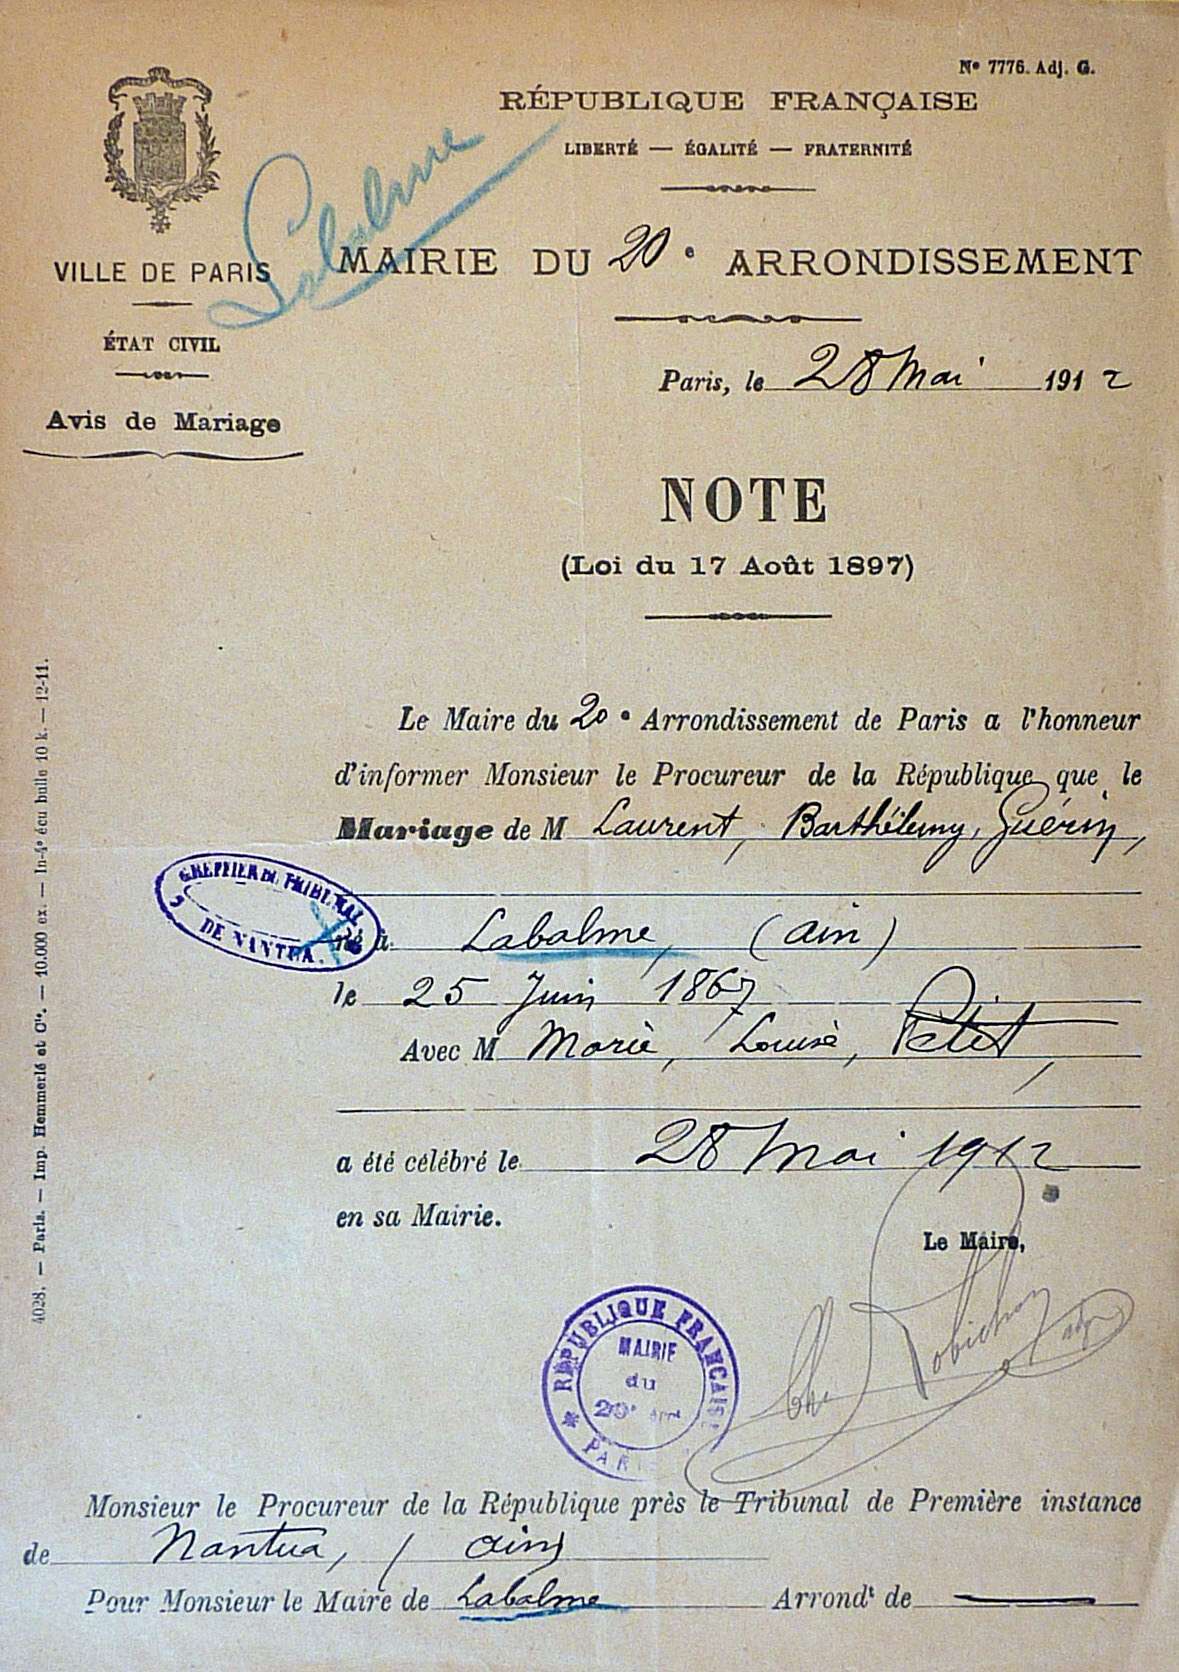 Nº 7776. Adj. G.
RÉPUBLIQUE FRANÇAISE
LIBERTÉ — ÉGALITÉ — FRATERNITÉ
Labalme
VILLE DE PARIS
MAIRIE DU 20e ARRONDISSEMENT
ÉTAT CIVIL
Avis de Mariage
Paris, le 28 Mai 1912
NOTE
(Loi du 17 Août 1897)
Le Maire du 20e Arrondissement de Paris a l'honneur
d'informer Monsieur le Procureur de la République que le
Mariage de M Laurent, Barthélemy, Guérin,
GREFFIER DU TRIBUNAL
DE NANTUA.
né à Labalme, (ain)
le 25 Juin 1867
Avec M Marie, Louise, Petit,
a été célébré le 28 Mai 1912
en sa Mairie.
Le Maire,
RÉPUBLIQUE FRANÇAISE
MAIRIE
du
20e Arrt
PARIS
Monsieur le Procureur de la République près le Tribunal de Première instance
de Nantua, (ain)
Pour Monsieur le Maire de Labalme Arrondt de
4028. — Paris. — Imp. Hemmerlé et Cie. — 10.000 ex. — In-4º écu bulle 10 k. — 12-11.